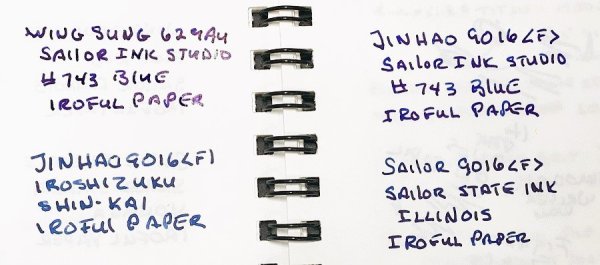 WING SUNG 629AU
SAILOR INK STUDIO
#743 BLUE
IROFUL PAPER
JINHAO 9016<F>
IROSHIZUKU
SHIN-KAI
IROFUL PAPER
JINHAO 9016<F>
SAILOR INK STUDIO
#743 BLUE
IROFUL PAPER
SAILOR 9016<F>
SAILOR STATE INK
ILLINOIS
IROFUL PAPER